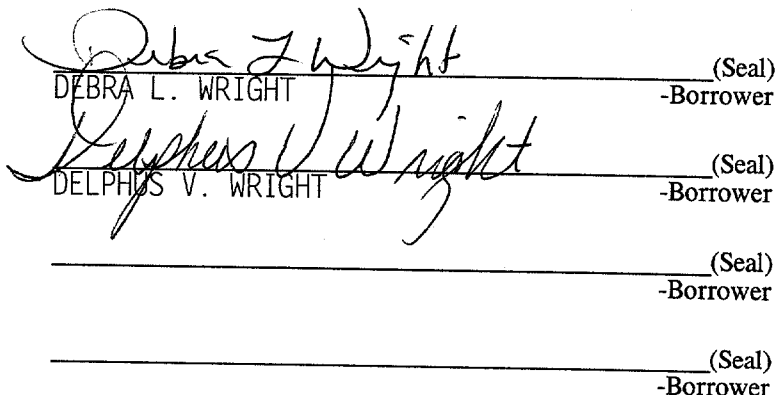 Debra L Wright (Seal)
DEBRA L. WRIGHT -Borrower
Delphus V Wright (Seal)
DELPHUS V. WRIGHT -Borrower
(Seal)
-Borrower
(Seal)
-Borrower